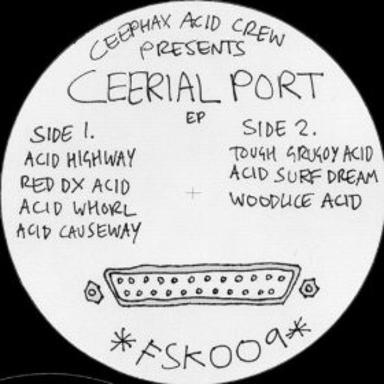 CEEPHAX ACID CREW
PRESENTS
CEERIAL PORT
EP
SIDE 1.
ACID HIGHWAY
RED DX ACID
ACID WHORL
ACID CAUSEWAY
SIDE 2.
TOUGH GRUGOY ACID
ACID SURF DREAM
WOODLICE ACID
*FSK009*